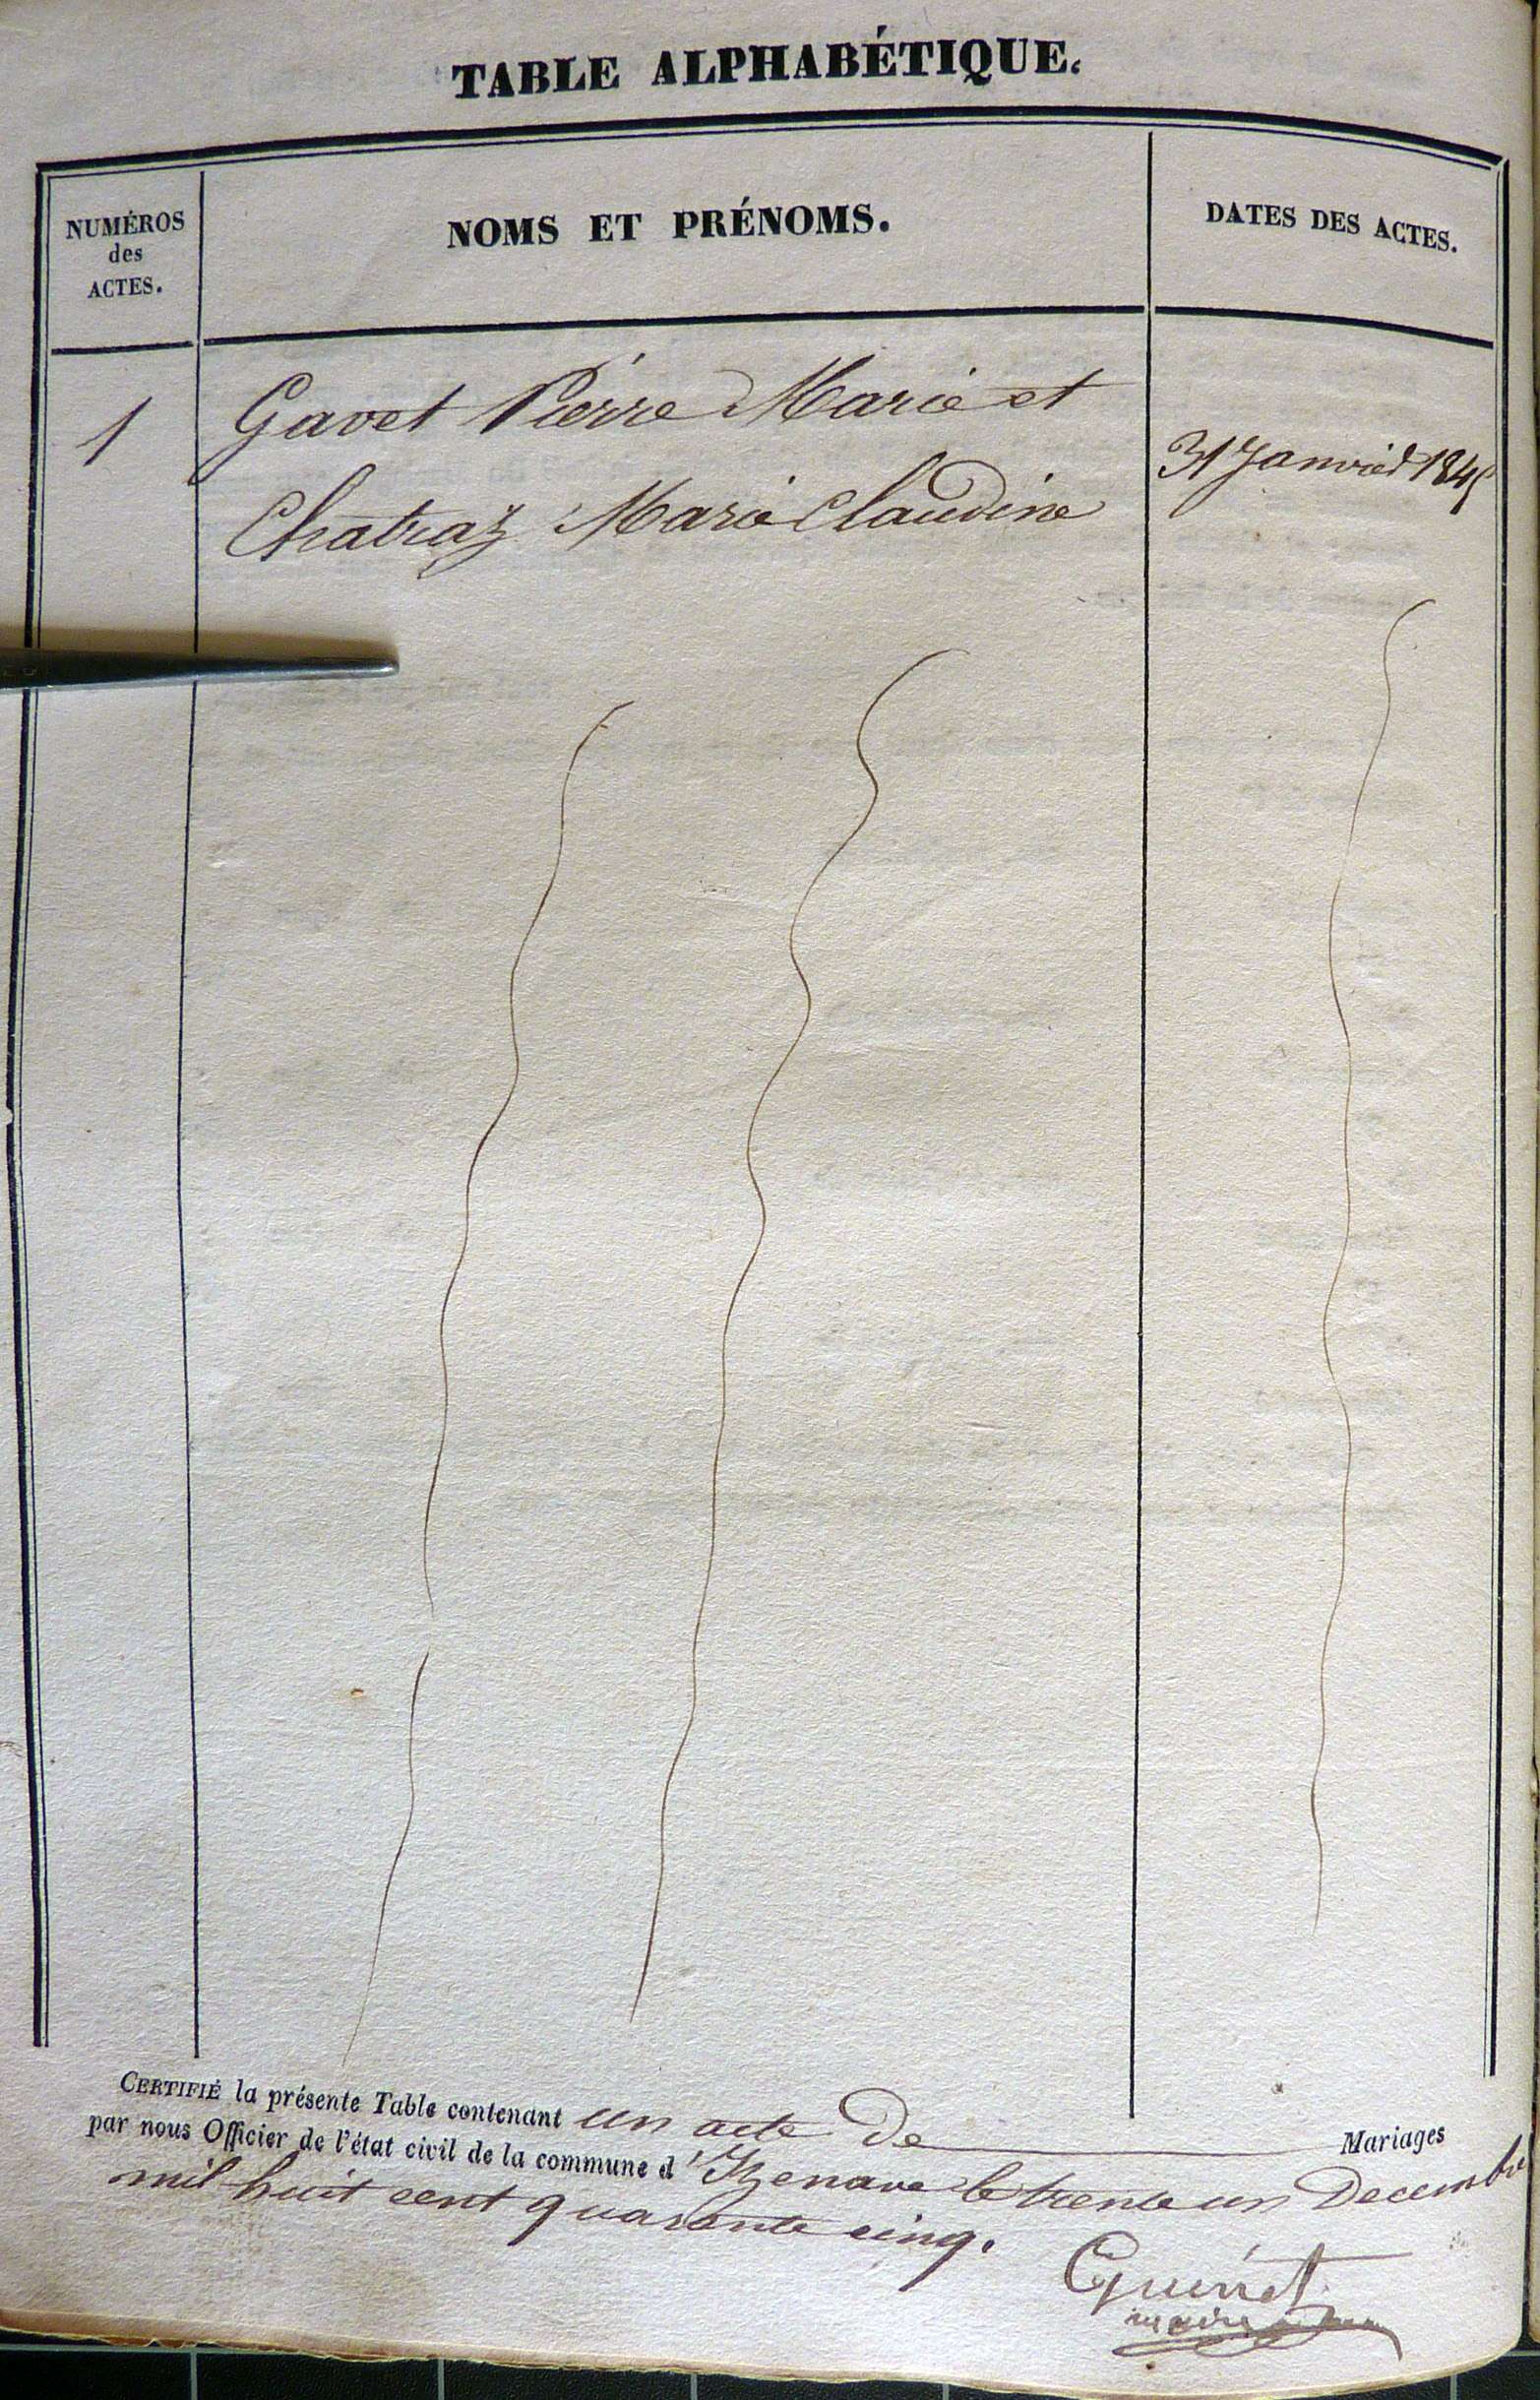 TABLE ALPHABÉTIQUE.
NUMÉROS
des
ACTES.
NOMS ET PRÉNOMS.
DATES DES ACTES.
1
Gavet Pierre Marie et
Chatraz Marie Claudine
31 Janvier 1845
CERTIFIÉ la présente Table contenant un acte De Mariages
par nous Officier de l'état civil de la commune d'Izenave le trente un Decembre
mil huit cent quarante cinq.
maire